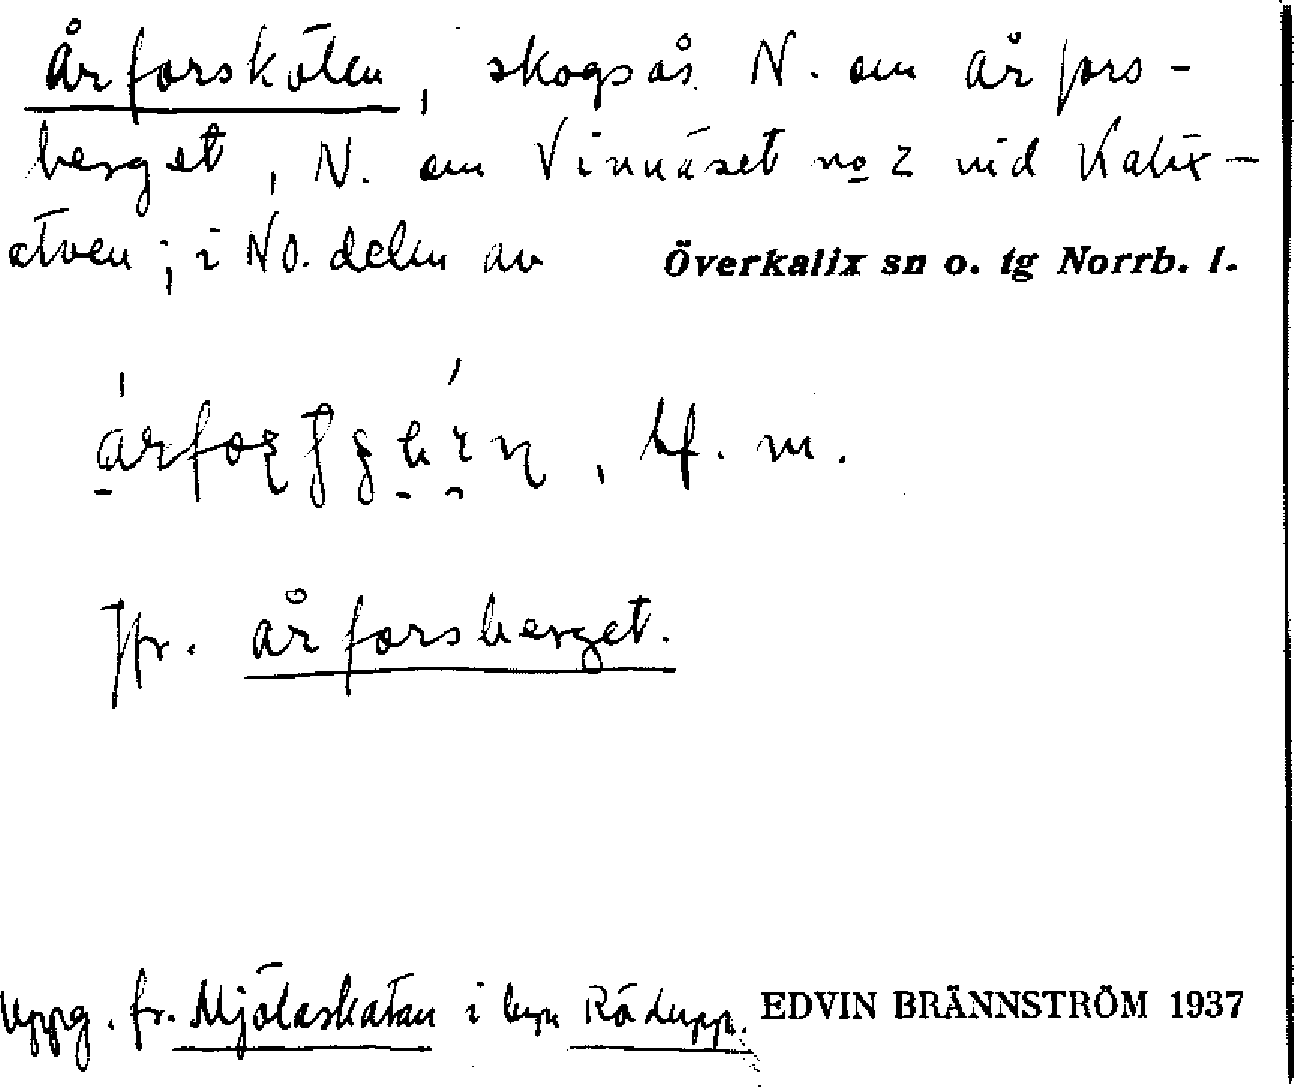 Årforskölen, skogsås N. om Årfors-
berget, N. om Vinnäset no 2 vid Kalix-
älven; i NO. delen av Överkalix sn o. tg Norrb. l.
bf. m.
Jfr. Årforsberget.
Uppg. fr. Mjölaskatan i byn Rödupp. EDVIN BRÄNNSTRÖM 1937